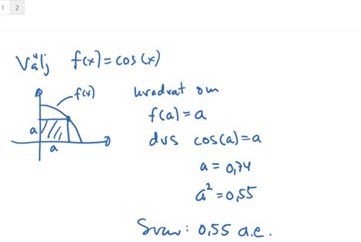 1 2
Välj f(x)=cos(x)
f(x)
kvadrat om
f(a)=a
a
a
dvs cos(a)=a
a = 0,74
a² = 0,55
Svar: 0,55 a.e.